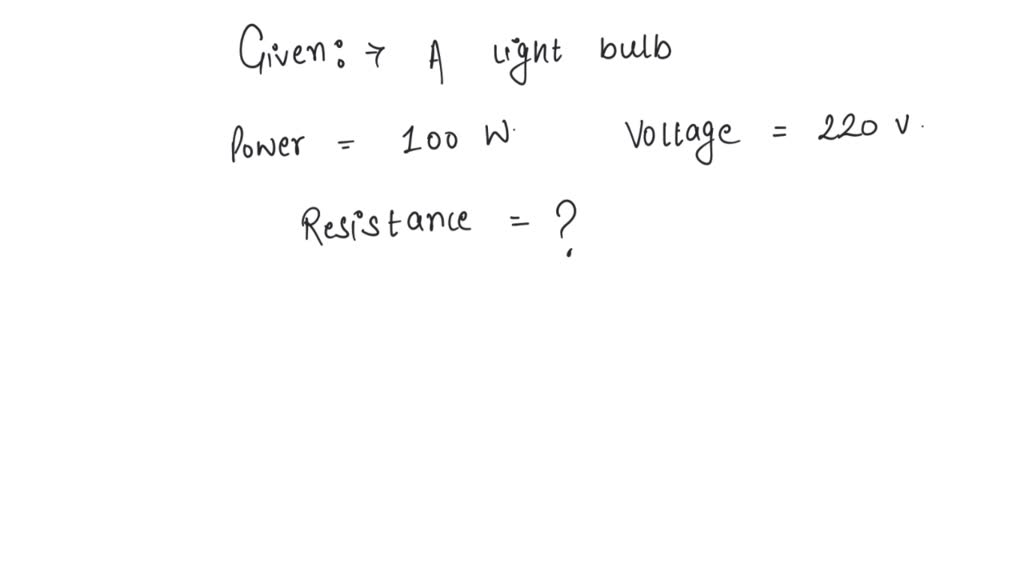 Given: → A light bulb
Power = 100 W. Voltage = 220 V.
Resistance = ?